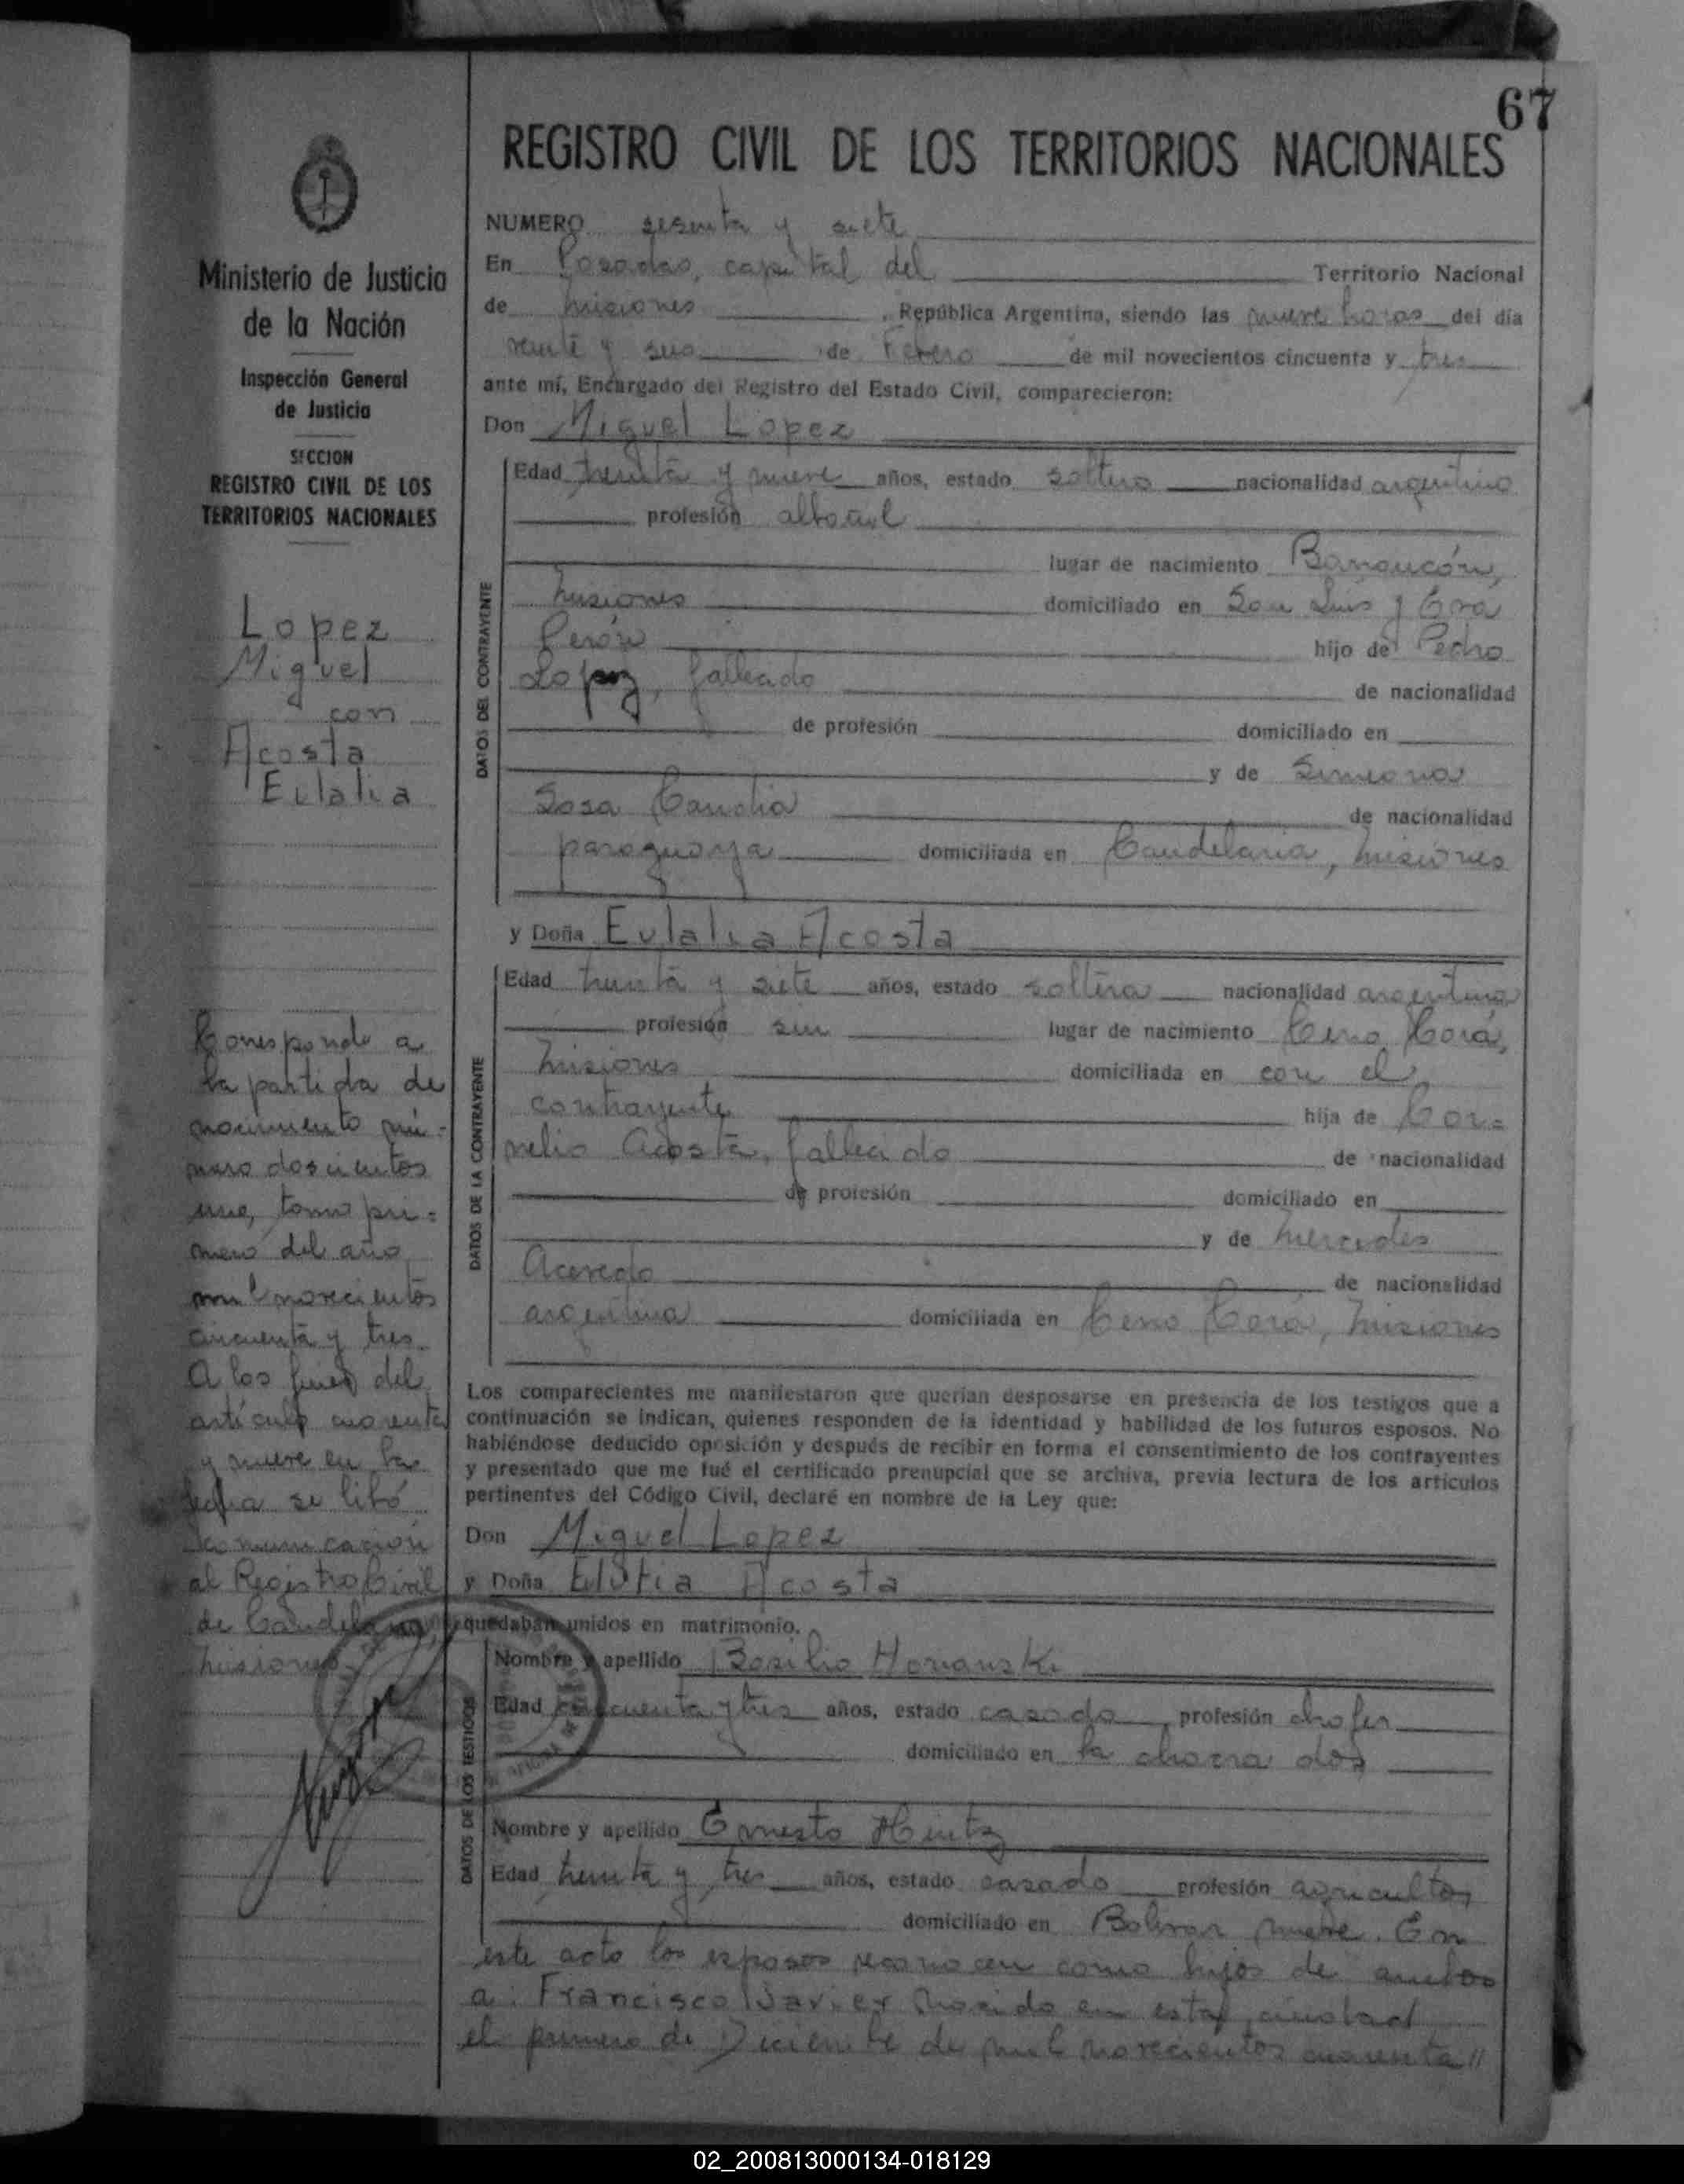 67
REGISTRO CIVIL DE LOS TERRITORIOS NACIONALES
Ministerio de Justicia
de la Nación
Inspección General
de Justicia
SECCION
REGISTRO CIVIL DE LOS
TERRITORIOS NACIONALES
Lopez
Miguel
con
Acosta
Eulalia
Corresponde a
la partida de
nacimiento nú-
mero doscientos
uno, tomo pri-
mero del año
mil novecientos
cincuenta y tres.
A los fines del
artículo cuarenta
y nueve en la
fecha se libró
comunicación
al Registro Civil
de Candelaria,
Misiones.
NUMERO sesenta y siete
En Posadas, capital del Territorio Nacional
de Misiones, República Argentina, siendo las nueve horas del día
veinte y seis de Febrero de mil novecientos cincuenta y tres
ante mí, Encargado del Registro del Estado Civil, comparecieron:
Don Miguel Lopez
DATOS DEL CONTRAYENTE
Edad treinta y nueve años, estado soltero nacionalidad argentino
profesión albañil
lugar de nacimiento Barrancón,
Misiones domiciliado en San Luis y Eva
Perón hijo de Pedro
Lopez, fallecido de nacionalidad
de profesión domiciliado en
y de Simeona
Sosa Candia de nacionalidad
paraguaya domiciliada en Candelaria, Misiones
y Doña Eulalia Acosta
DATOS DE LA CONTRAYENTE
Edad treinta y siete años, estado soltera nacionalidad argentina
profesión sin lugar de nacimiento Cerro Corá,
Misiones domiciliada en con el
contrayente hija de Cor-
nelio Acosta, fallecido de nacionalidad
de profesión domiciliado en
y de Mercedes
Acevedo de nacionalidad
argentina domiciliada en Cerro Corá, Misiones
Los comparecientes me manifestaron que querían desposarse en presencia de los testigos que a
continuación se indican, quienes responden de la identidad y habilidad de los futuros esposos. No
habiéndose deducido oposición y después de recibir en forma el consentimiento de los contrayentes
y presentado que me fué el certificado prenupcial que se archiva, previa lectura de los artículos
pertinentes del Código Civil, declaré en nombre de la Ley que:
Don Miguel Lopez
y Doña Acosta
quedaban unidos en matrimonio.
DATOS DE LOS TESTIGOS
Nombre y apellido Basilio
Edad cincuenta y tres años, estado casado, profesión chofer
domiciliado en la chacra dos
Nombre y apellido Ernesto Hintz
Edad treinta y tres años, estado casado profesión agricultor
domiciliado en Bolivar nueve. En
este acto los esposos reconocen como hijos de ambos
a: Francisco Javier nacido en esta ciudad
el primero de Diciembre de mil novecientos cuarenta //
02_200813000134-018129